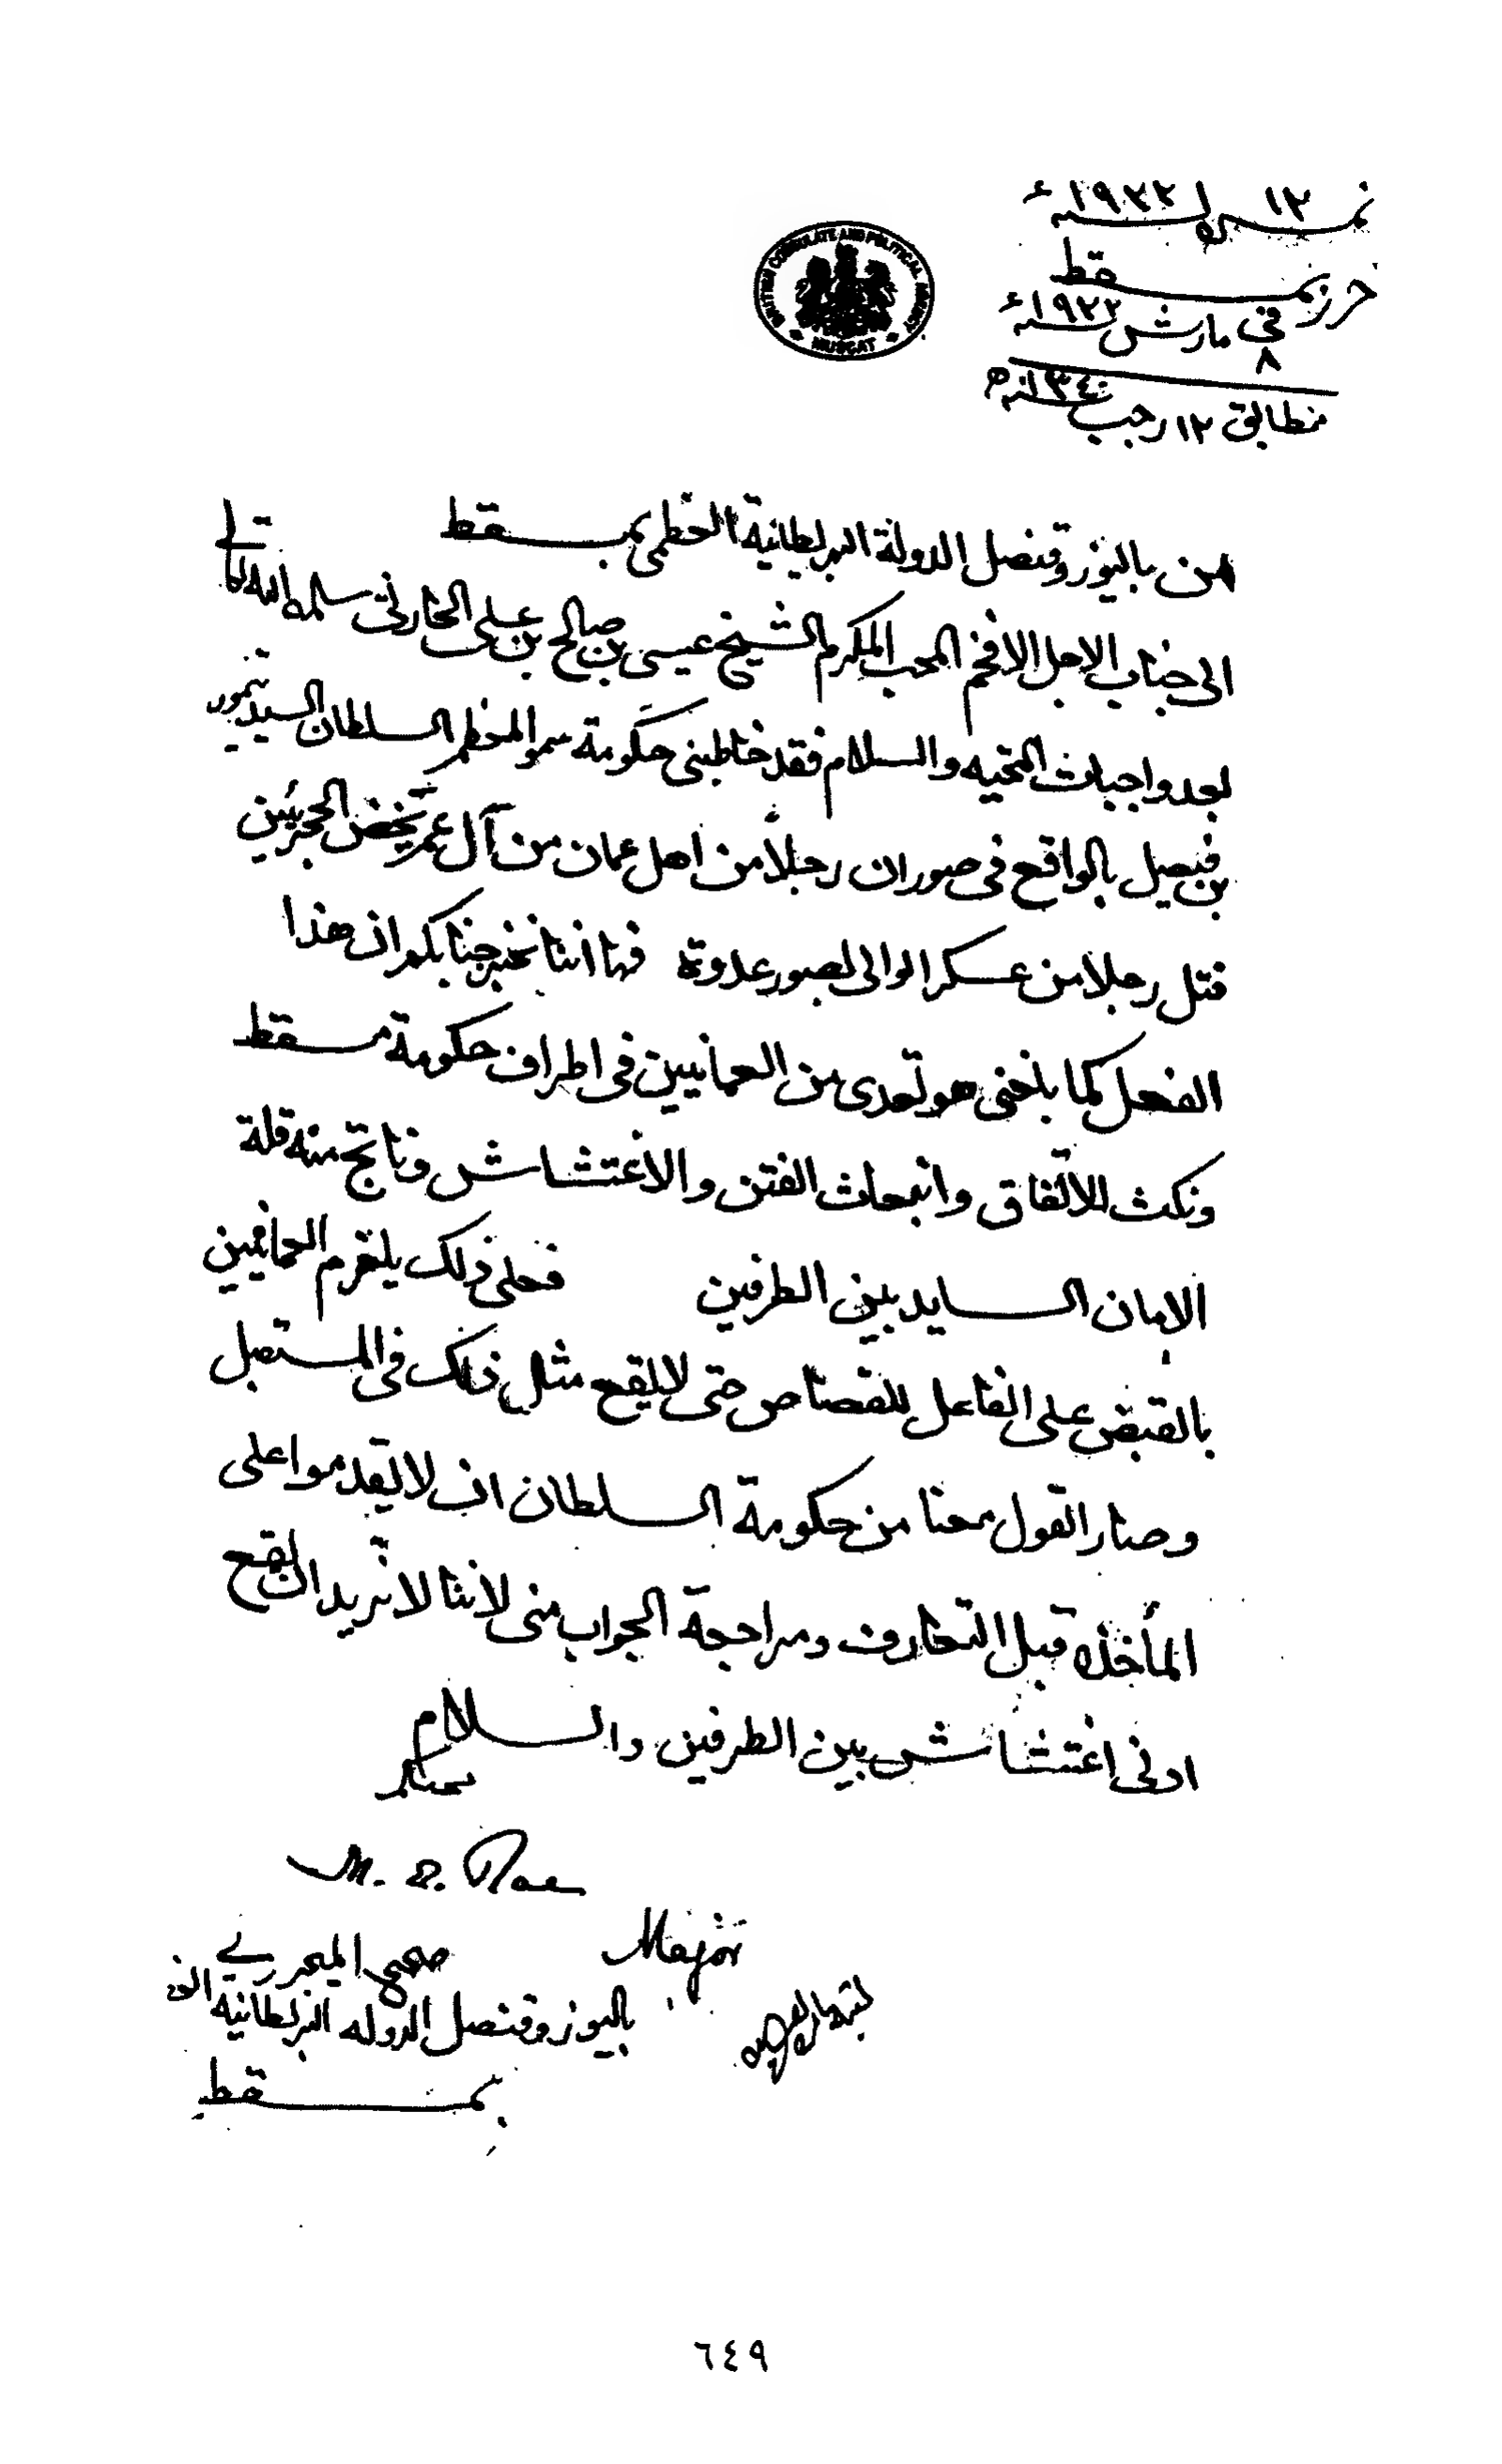 نمبر ١٢ لسنه ١٩٢٢ء
حرر بمسقط
في ٨ مارش سنه ١٩٢٢ء
مطابق ١٢ رجب سنه ١٣٤٠ه
BRITISH CONSULATE AND POLITICAL AGENCY
MUSCAT
من باليوز وقنصل الدولة البرطانية العظمى بمسقط
الى جناب الاجل الافخم المحب المكرم الشيخ عيسى بن صالح بن علي الحارثي سلمه الله تعالى
بعد واجبات التحيه والسلام فقد خاطبنى حكومة سمو المعظم السلطان السيد تيمور
بن فيصل بالواقع فى صور ان رجلاً من اهل عمان من آل عمر بخض الحجريين
قتل رجلا من عسكر الوالى بصور عدوة فها اننا نخبر جنابكم ان هذا
الفعل كما بلغنى هو تعدى من العمانيين فى اطراف حكومة مسقط
ونكث للاتفاق وانبعاث الفتن والاغتشاش وناتج منه قلة
الامان السايد بين الطرفين فعلى ذلك يلتزم العمانيين
بالقبض على الفاعل للقصاص حتى لا يقع مثل ذلك فى المستقبل
وصار القول معنا من حكومة السلطان ان لا يقدموا على
المأخذه قبل التعارف ومراجعة الجواب منى لاننا لا نريد ان يقع
ادنى اغتشاش بين الطرفين والسلام
M. E. Rae
Major
صحيح الميجر ري
باليوز وقنصل الدوله البرطانيه
بمسقط
٦٤٩